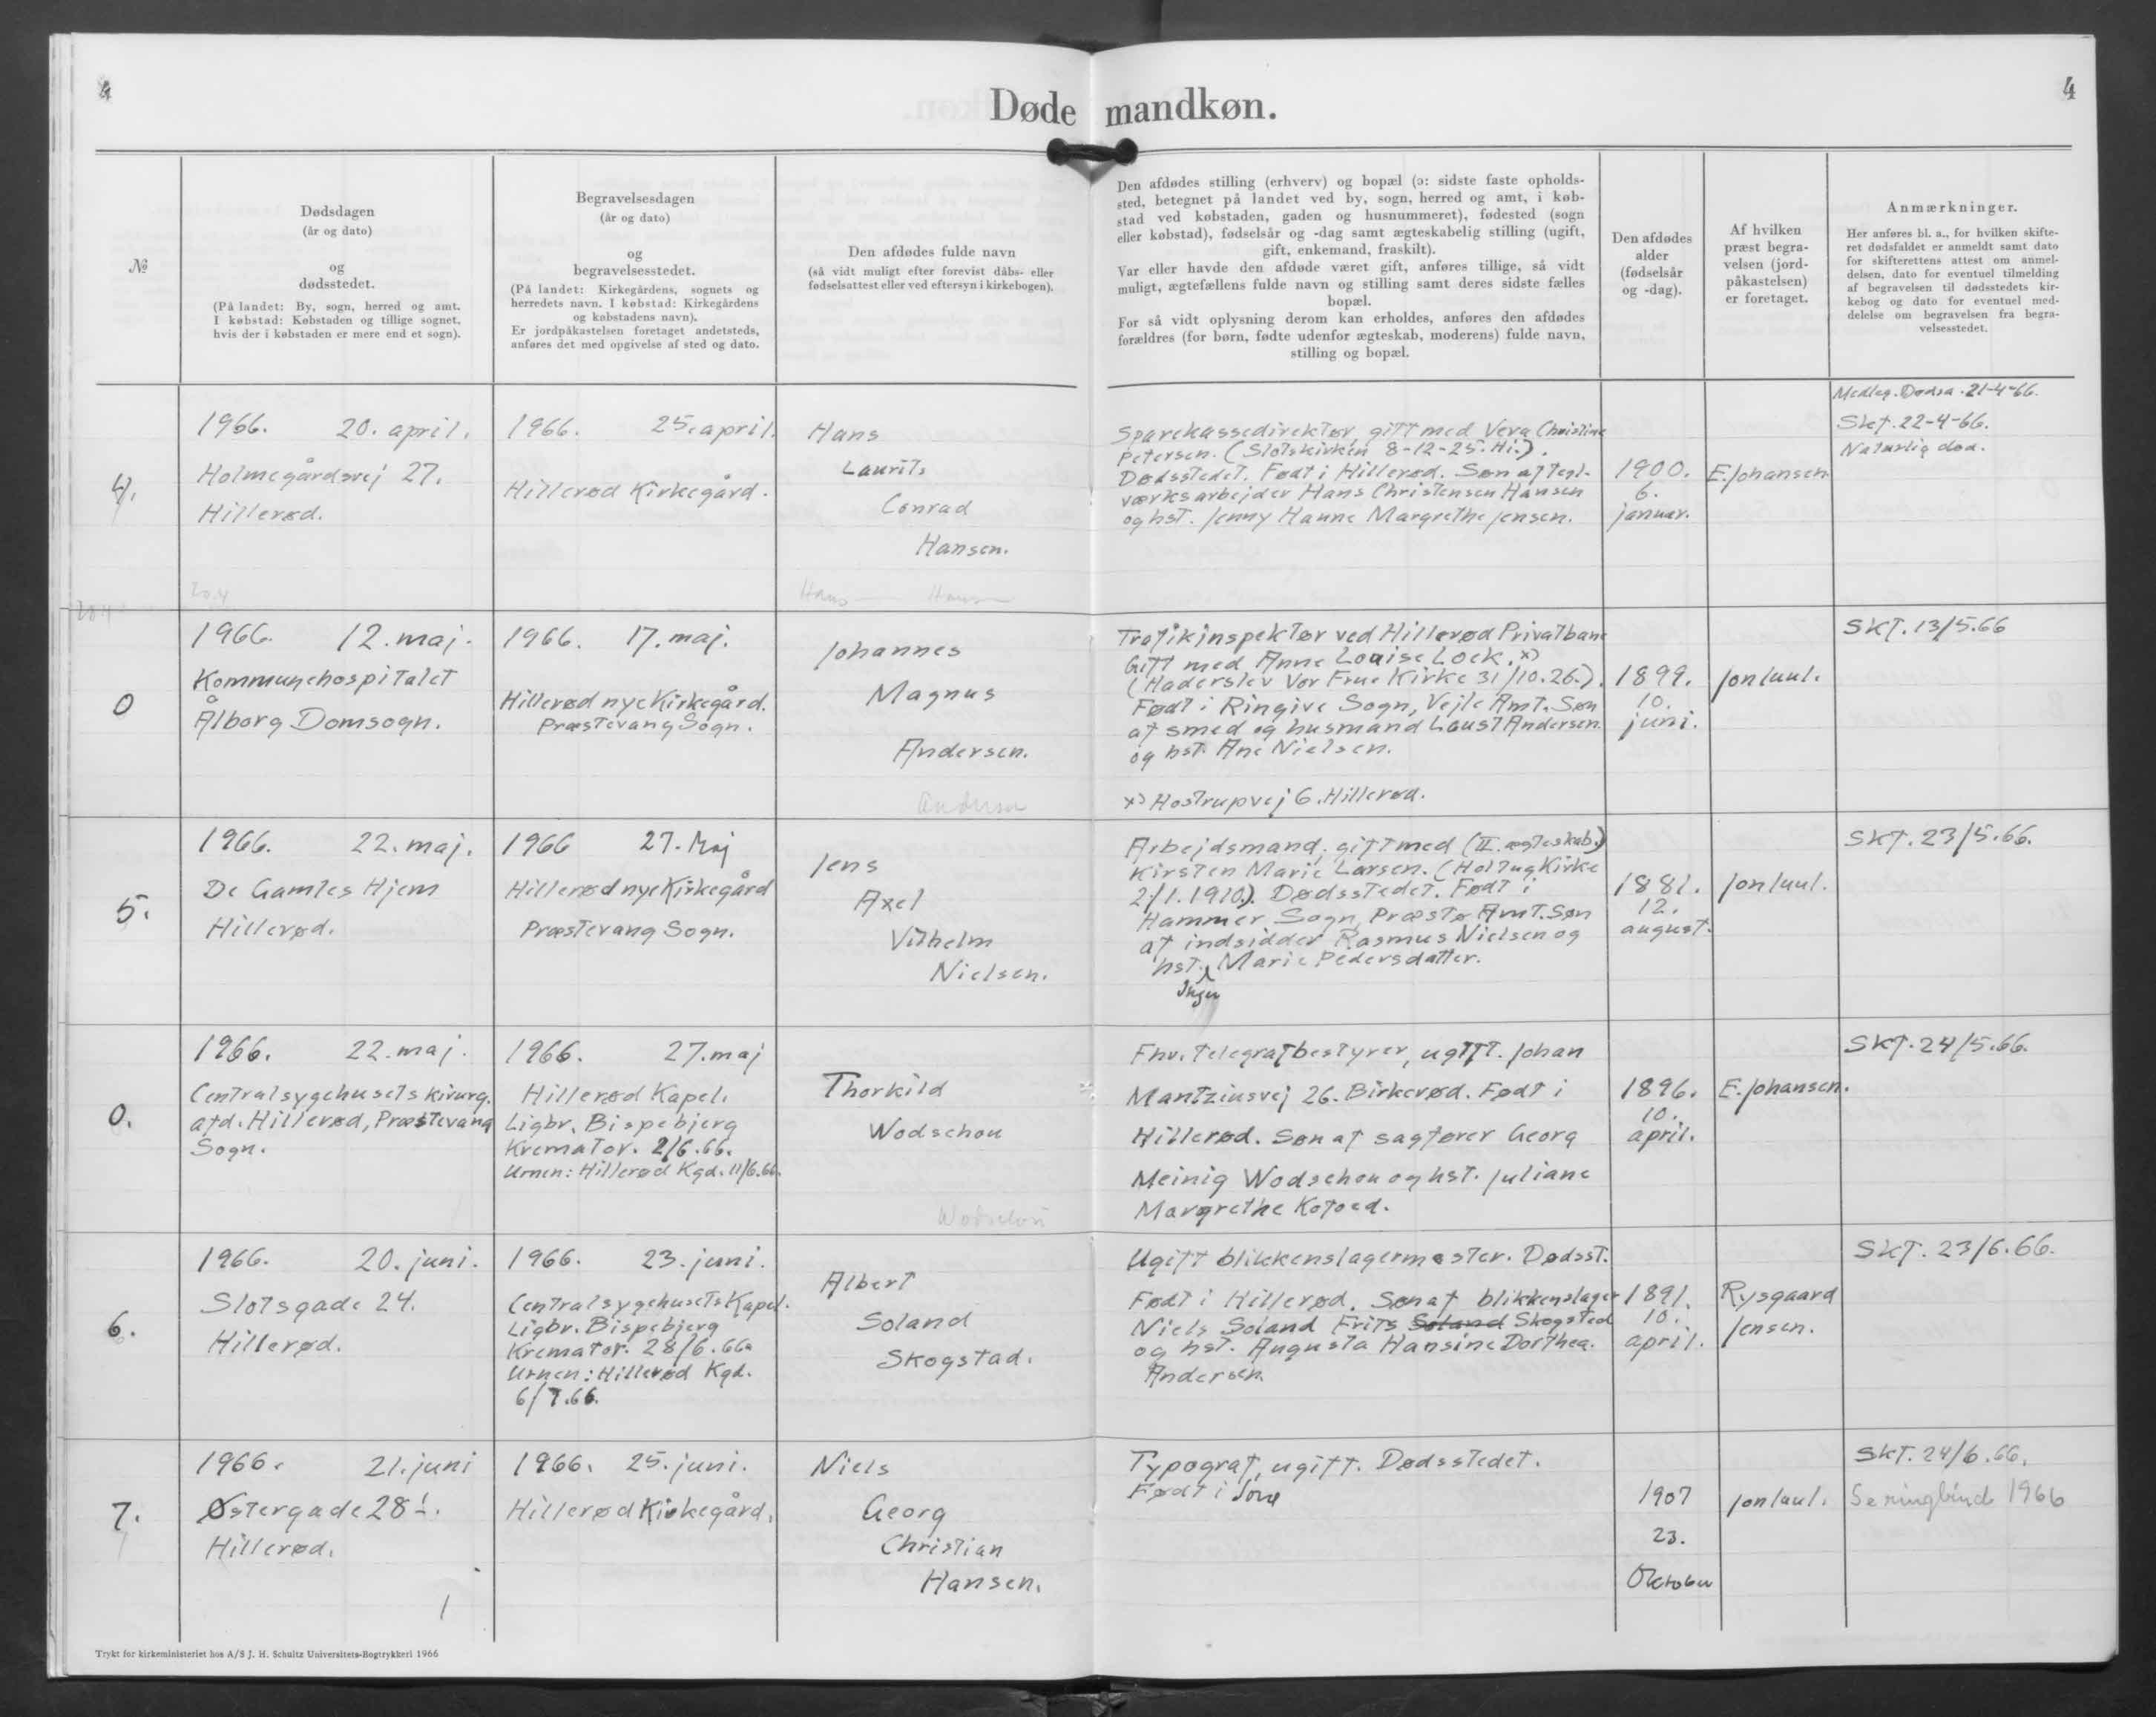 4
Døde mandkøn.
4
№
Dødsdagen
(år og dato)
og
dødsstedet.
(På landet: By, sogn, herred og amt.
I købstad: Købstaden og tillige sognet,
hvis der i købstaden er mere end et sogn).
Begravelsesdagen
(år og dato)
og
begravelsesstedet.
(På landet: Kirkegårdens, sognets og
herredets navn. I købstad: Kirkegårdens
og købstadens navn).
Er jordpåkastelsen foretaget andetsteds,
anføres det med opgivelse af sted og dato.
Den afdødes fulde navn
(så vidt muligt efter forevist dåbs- eller
fødselsattest eller ved eftersyn i kirkebogen).
Den afdødes stilling (erhverv) og bopæl (ɔ: sidste faste opholds-
sted, betegnet på landet ved by, sogn, herred og amt, i køb-
stad ved købstaden, gaden og husnummeret), fødested (sogn
eller købstad), fødselsår og -dag samt ægteskabelig stilling (ugift,
gift, enkemand, fraskilt).
Var eller havde den afdøde været gift, anføres tillige, så vidt
muligt, ægtefællens fulde navn og stilling samt deres sidste fælles
bopæl.
For så vidt oplysning derom kan erholdes, anføres den afdødes
forældres (for børn, fødte udenfor ægteskab, moderens) fulde navn,
stilling og bopæl.
Den afdødes
alder
(fødselsår
og -dag).
Af hvilken
præst begra-
velsen (jord-
påkastelsen)
er foretaget.
Anmærkninger.
Her anføres bl. a., for hvilken skifte-
ret dødsfaldet er anmeldt samt dato
for skifterettens attest om anmel-
delsen, dato for eventuel tilmelding
af begravelsen til dødsstedets kir-
kebog og dato for eventuel med-
delelse om begravelsen fra begra-
velsesstedet.
4.
1966. 20. april.
Holmegårdsvej 27.
Hillerød.
20.4
1966. 25. april.
Hillerød Kirkegård.
Hans
Laurits
Conrad
Hansen.
Hans Hansen
Sparekassedirektør, gift med Vera Christine
Petersen. (Slotskirken 8-12-25. Hi.).
Dødsstedet. Født i Hillerød. Søn af tegl-
værksarbejder Hans Christensen Hansen
og hst. Jenny Hanne Margrethe Jensen.
1900.
6.
januar.
E. Johansen
Medleg. Dødsa. 21-4-66.
Skt. 22-4-66.
Naturlig død.
20.4
0
1966. 12. maj.
Kommunehospitalet
Ålborg Domsogn.
1966. 17. maj.
Hillerød nye Kirkegård.
Præstevang Sogn.
Johannes
Magnus
Andersen.
Andersen
Trafikinspektør ved Hillerød Privatbane
Gift med Anne Louise Lock. x)
(Haderslev Vor Frue Kirke 31/10.26.).
Født i Ringive Sogn, Vejle Amt. Søn
af smed og husmand Laust Andersen
og hst. Ane Nielsen.
x) Hostrupvej 6. Hillerød.
1899.
10.
juni.
Jon Juul.
Skf. 13/5.66
5.
1966. 22. maj.
De Gamles Hjem
Hillerød.
1966 27. Maj
Hillerød nye Kirkegård
Præstevang Sogn.
Jens
Axel
Vilhelm
Nielsen.
Arbejdsmand, gift med (II. ægteskab.)
Kirsten Marie Larsen. (Holtug Kirke
2/1.1910). Dødsstedet. Født i
Hammer Sogn, Præstø Amt. Søn
af indsidder Rasmus Nielsen og
hst. Marie Pedersdatter.
Inger
1881.
12.
august.
Jon Juul.
Skf. 23/5.66.
0.
1966. 22. maj.
Centralsygehusets kirurg.
afd. Hillerød, Præstevang
Sogn.
1966. 27. maj
Hillerød Kapel.
Ligbr. Bispebjerg
Kremator. 2/6.66.
Urnen: Hillerød Kgd. 11/6.66.
Thorkild
Wodschou
Wodschou
Fhv. telegrafbestyrer, ugift. Johan
Mantziusvej 26. Birkerød. Født i
Hillerød. Søn af sagfører Georg
Meinig Wodschou og hst. Juliane
Margrethe Kofoed.
1896.
10.
april.
E. Johansen.
Skf. 24/5.66.
6.
1966. 20. juni.
Slotsgade 24.
Hillerød.
1966. 23. juni.
Centralsygehusets Kapel.
Ligbr. Bispebjerg
Kremator. 28/6.66.
Urnen: Hillerød Kgd.
6/7.66.
Albert
Soland
Skogstad.
Ugift blikkenslagermester. Dødsst.
Født i Hillerød. Søn af blikkenslager
Niels Soland Frits Soland Skogsted
og hst. Augusta Hansine Dorthea.
Andersen.
1891.
10.
april.
Rysgaard
Jensen.
Skf. 23/6.66.
7.
1966. 21. juni
Østergade 28 1.
Hillerød.
1966. 25. juni.
Hillerød Kirkegård.
Niels
Georg
Christian
Hansen.
Typograf, ugift. Dødsstedet.
Født i
1907
23.
Oktober
Jon Juul.
Skf. 24/6.66.
Se ringbind 1966
Trykt for kirkeministeriet hos A/S J. H. Schultz Universitets-Bogtrykkeri 1966